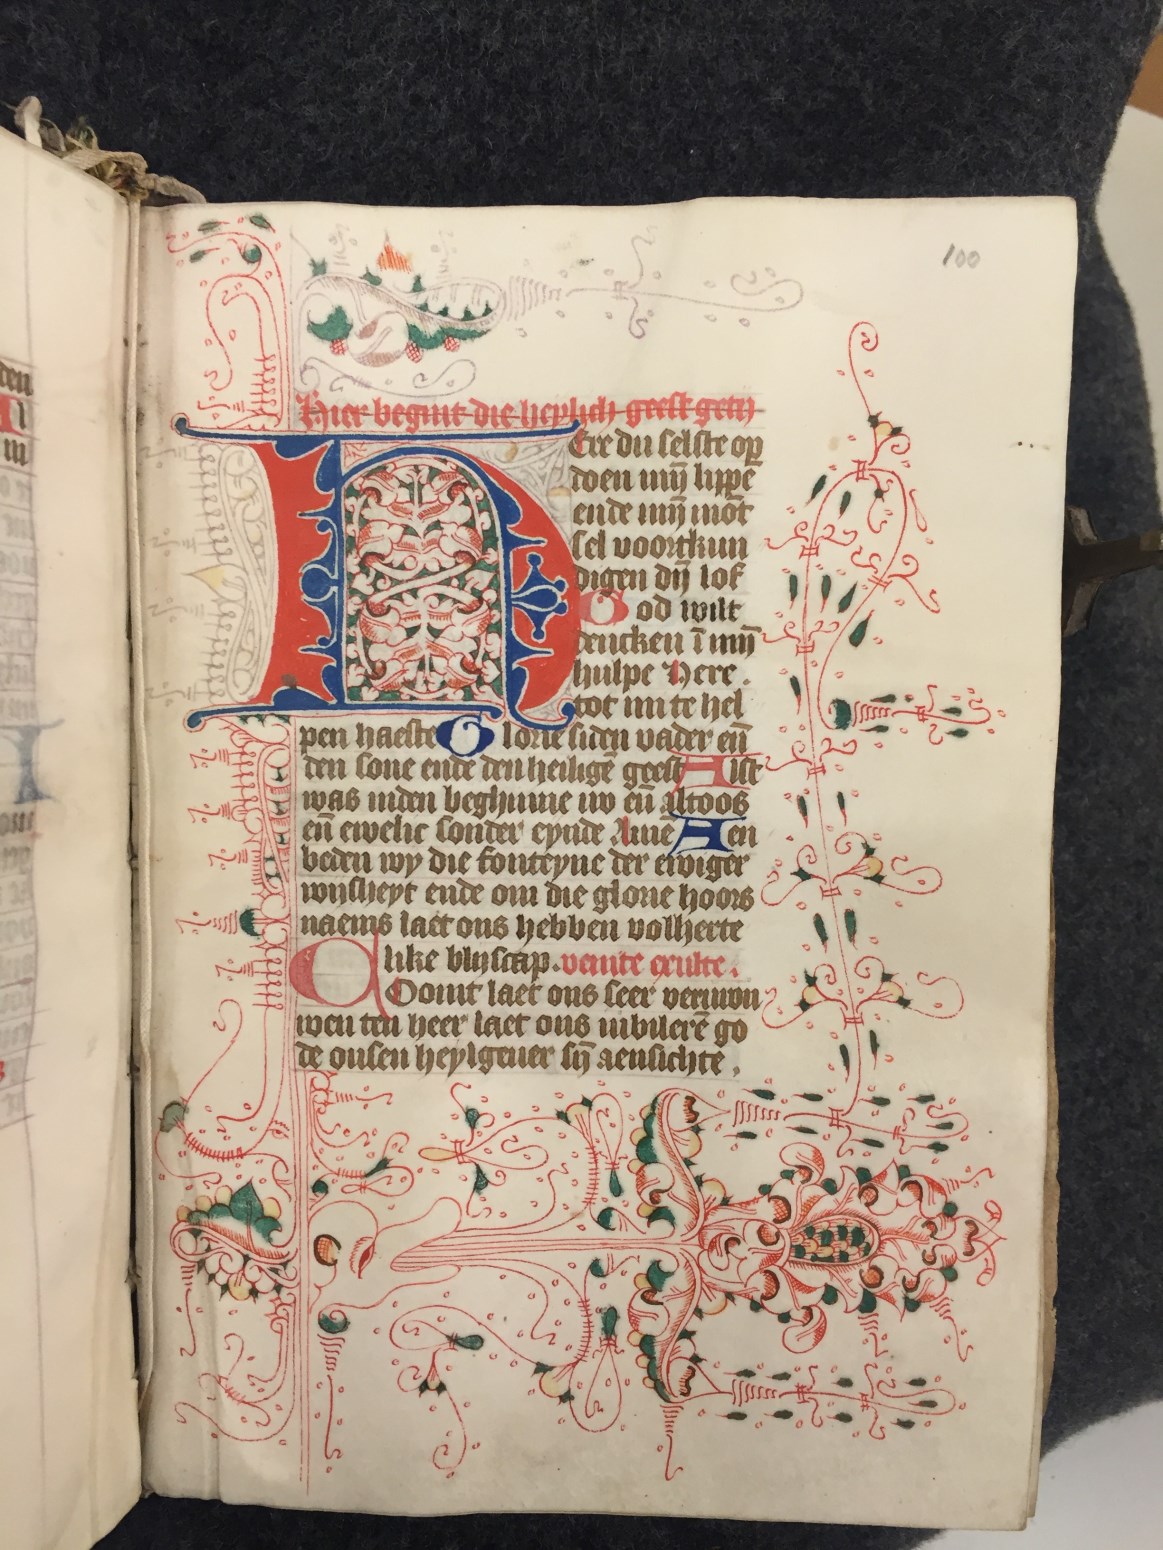 100
Hier begint die heylich geest getij
HEre du selste op
doen mijn lippē
ende mijn mōt
sel voortkun
digen dijn lof
God wilt
dencken ī mijn
hulpe Here.
tot mi te hel
pen haeste Glorie si den vader eñ
den sone ende den heiligē geest Alst
was inden beghinne nv eñ altoos
eñ ewelic sonder eynde Amē Aen
beden wy die fonteyne der ewiger
wijsheyt ende om die glorie hoors
naems laet ons hebben volherte
like blijscap. venite exulte.
Coomt laet ons seer vervron
wen ten heer laet ons iubilerē go
de onsen heylgever sijn aensichte,